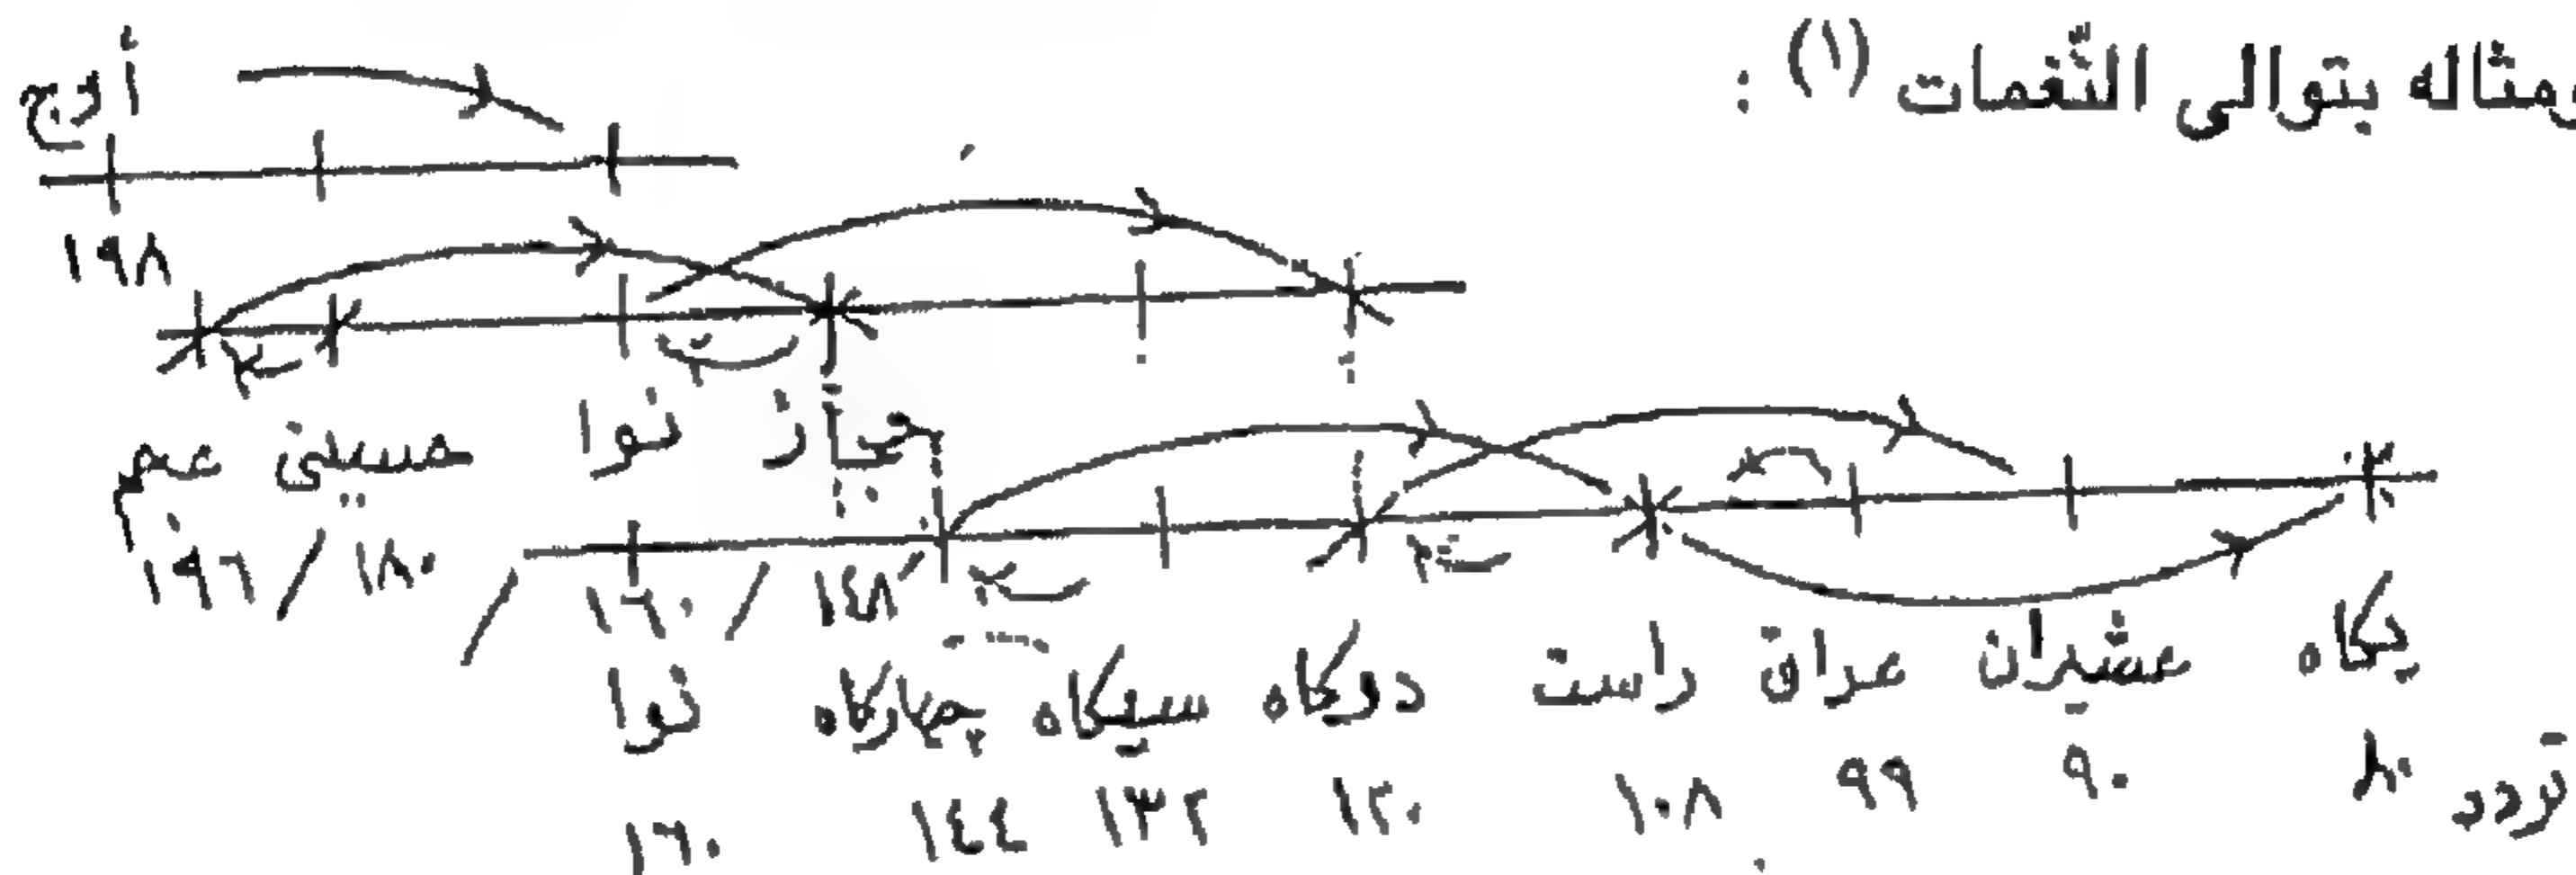 ومثاله بتوالى النّغمات (١) :
أوج
١٩٨
حجاز نوا حسينى عجم
١٤٨ / ١٦٠ / ١٨٠ / ١٩٦
يكاه عشيران عراق راست دوكاه سيكاه چهاركاه نوا
تردد ٨٠ ٩٠ ٩٩ ١٠٨ ١٢٠ ١٣٢ ١٤٤ ١٦٠